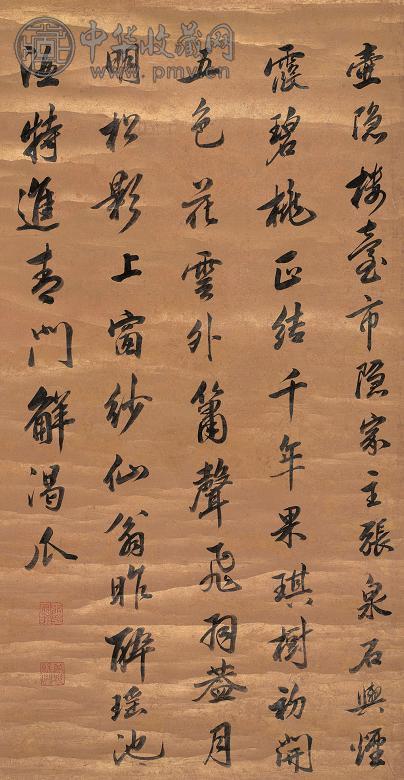 壺隐楼臺市隐家主張泉石與煙
霞碧桃正结千年果琪樹初開
五色花雲外簫聲飛羽蓋月
明松影上窗紗仙翁昨醉瑶池
特進青門解渴瓜
中华收藏网
www.pmv.cn